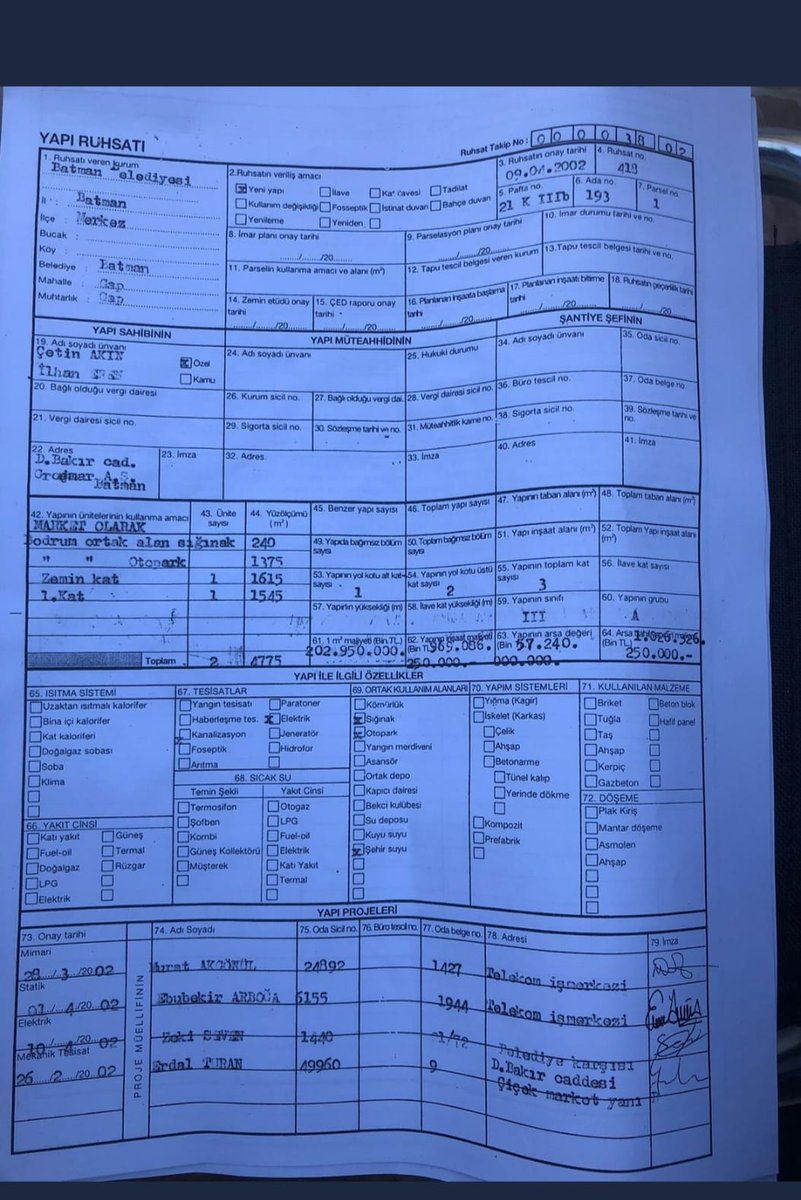 YAPI RUHSATI
Ruhsat Takip No : 0 0 0 0 3 8 0 2
1. Ruhsatı veren kurum
Batman Belediyesi
İl : Batman
İlçe : Merkez
Bucak :
Köy :
Belediye : Batman
Mahalle : Gap
Muhtarlık : Gap
2.Ruhsatın veriliş amacı
Yeni yapı İlave Kat ilavesi Tadilat
Kullanım değişikliği Fosseptik İstinat duvarı Bahçe duvarı
Yenileme Yeniden
3. Ruhsatın onay tarihi
09.04.2002
4. Ruhsat no.
418
5. Pafta no.
21 K IIIb
6. Ada no.
193
7. Parsel no.
1
8. İmar planı onay tarihi
....../....../20......
9. Parselasyon planı onay tarihi
....../....../20......
10. İmar durumu tarihi ve no.
11. Parselin kullanma amacı ve alanı (m²)
12. Tapu tescil belgesi veren kurum
13.Tapu tescil belgesi tarihi ve no.
14. Zemin etüdü onay tarihi
....../....../20......
15. ÇED raporu onay tarihi
....../....../20......
16. Planlanan inşaata başlama tarihi
....../....../20......
17. Planlanan inşaatı bitirme tarihi
....../....../20......
18. Ruhsatın geçerlilik tarihi
....../....../20......
YAPI SAHİBİNİN
YAPI MÜTEAHHİDİNİN
ŞANTİYE ŞEFİNİN
19. Adı soyadı ünvanı
Çetin AKIN
İlhan
Özel
Kamu
20. Bağlı olduğu vergi dairesi
21. Vergi dairesi sicil no.
22. Adres
D.Bakır cad.
Batman
23. İmza
24. Adı soyadı ünvanı
25. Hukuki durumu
26. Kurum sicil no.
27. Bağlı olduğu vergi dai.
28. Vergi dairesi sicil no.
29. Sigorta sicil no.
30. Sözleşme tarihi ve no.
31. Müteahhitlik karne no.
32. Adres
33. İmza
34. Adı soyadı ünvanı
35. Oda sicil no.
36. Büro tescil no.
37. Oda belge no.
38. Sigorta sicil no.
39. Sözleşme tarihi ve no.
40. Adres
41. İmza
42. Yapının ünitelerinin kullanma amacı
43. Ünite sayısı
44. Yüzölçümü (m²)
MARKET OLARAK
Bodrum ortak alan sığınak 240
" " Otopark 1375
Zemin kat 1 1615
1.Kat 1 1545
Toplam 2 4775
45. Benzer yapı sayısı
46. Toplam yapı sayısı
47. Yapının taban alanı (m²)
48. Toplam taban alanı (m²)
49. Yapıda bağımsız bölüm sayısı
50. Toplam bağımsız bölüm sayısı
51. Yapı inşaat alanı (m²)
52. Toplam Yapı inşaat alanı (m²)
53. Yapının yol kotu alt kat sayısı
1
54. Yapının yol kotu üstü kat sayısı
2
55. Yapının toplam kat sayısı
3
56. İlave kat sayısı
57. Yapının yüksekliği (m)
58. İlave kat yüksekliği (m)
59. Yapının sınıfı
III
60. Yapının grubu
A
61. 1 m² maliyeti (Bin TL)
202.950.000.-
62. Yapının inşaat maliyeti (Bin TL)
250.000.-
63. Yapının arsa değeri (Bin
57.240.
000.000.-
250.000.-
YAPI İLE İLGİLİ ÖZELLİKLER
65. ISITMA SİSTEMİ
Uzaktan ısıtmalı kalorifer
Bina içi kalorifer
Kat kaloriferi
Doğalgaz sobası
Soba
Klima
66. YAKIT CİNSİ
Katı yakıt Güneş
Fuel-oil Termal
Doğalgaz Rüzgar
LPG
Elektrik
67. TESİSATLAR
Yangın tesisatı Paratoner
Haberleşme tes. Elektrik
Kanalizasyon Jeneratör
Foseptik Hidrofor
Arıtma
68. SICAK SU
Temin Şekli Yakıt Cinsi
Termosifon Otogaz
Şofben LPG
Kombi Fuel-oil
Güneş Kollektörü Elektrik
Müşterek Katı Yakıt
Termal
69. ORTAK KULLANIM ALANLARI
Kömürlük
Sığınak
Otopark
Yangın merdiveni
Asansör
Ortak depo
Kapıcı dairesi
Bekci kulübesi
Su deposu
Kuyu suyu
Şehir suyu
70. YAPIM SİSTEMLERİ
Yığma (Kagir)
İskelet (Karkas)
Çelik
Ahşap
Betonarme
Tünel kalıp
Yerinde dökme
Kompozit
Prefabrik
71. KULLANILAN MALZEME
Briket Beton blok
Tuğla Hafif panel
Taş
Ahşap
Kerpiç
Gazbeton
72. DÖŞEME
Plak Kiriş
Mantar döşeme
Asmolen
Ahşap
YAPI PROJELERİ
73. Onay tarihi
PROJE MÜELLİFİNİN
74. Adı Soyadı
75. Oda Sicil no.
76. Büro tescil no.
77. Oda belge no.
78. Adresi
79. İmza
Mimari
28/3/2002 Murat 24892 1427 Telekom işmerkezi
Statik
01/4/2002 Ebubekir ARBOĞA 6155 1944 Telekom işmerkezi
Elektrik
10/4/2002 Zeki SEVEN 1440 Belediye karşısı
Mekanik Tesisat
26/2/2002 Erdal TURAN 49960 9 D.Bakır caddesi
Çiçek market yanı